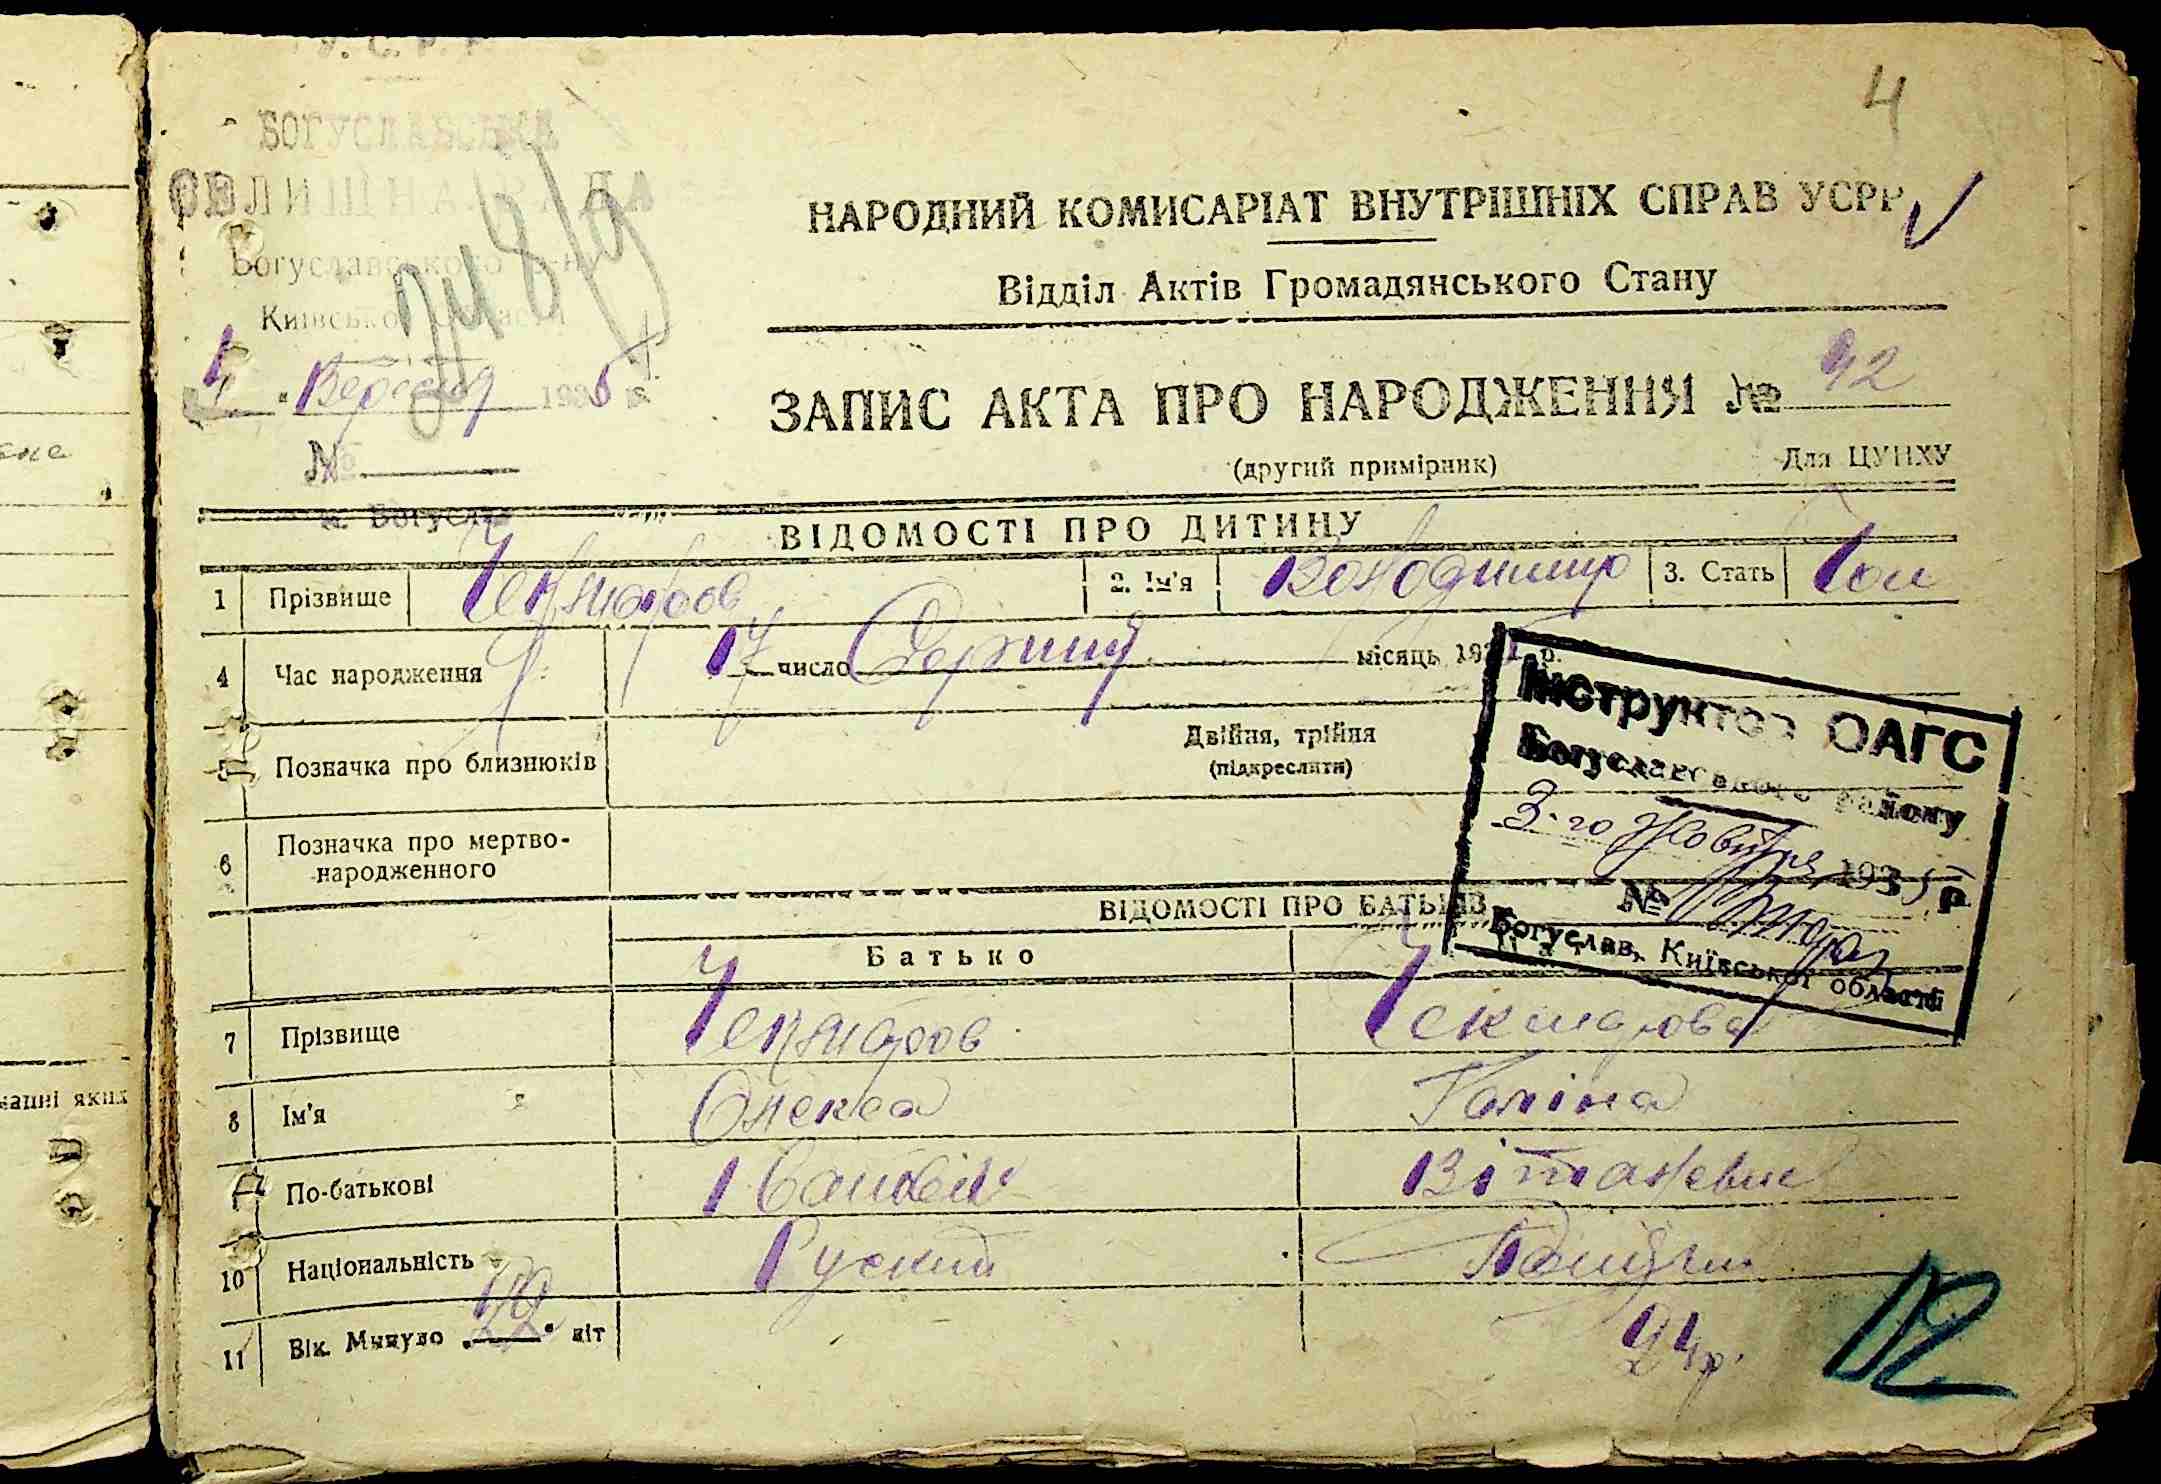 У. С. Р. Р.
БОГУСЛАВСЬКА
СЕЛИЩНА РАДА
Богуславського р-ну
Київської області
1 " Вересня 1935 р.
№
м. Богуслав
4
НАРОДНИЙ КОМИСАРІАТ ВНУТРІШНІХ СПРАВ УСРР
Відділ Актів Громадянського Стану
ЗАПИС АКТА ПРО НАРОДЖЕННЯ № 92
(другий примірник) Для ЦУНХУ
ВІДОМОСТІ ПРО ДИТИНУ
1 Прізвище Чекмарьов 2. Ім'я Володимир 3. Стать Чол
4 Час народження 17 число Серпня місяць 193 р.
5 Позначка про близнюків Двійня, трійня
(підкреслити)
6 Позначка про мертво-
народженного
Інструктор ОАГС
Богуславського району
3-го Жовтня 1935 р
№
Богуслав, Київської області
ВІДОМОСТІ ПРО БАТЬКІВ
Батько
7 Прізвище Чекмарьов Чекмарьова
8 Ім'я Олекса Галіна
По-батькові Віталевна
10 Національність Руский
11 Вік. Минуло „ " літ 24р.
ванні яких